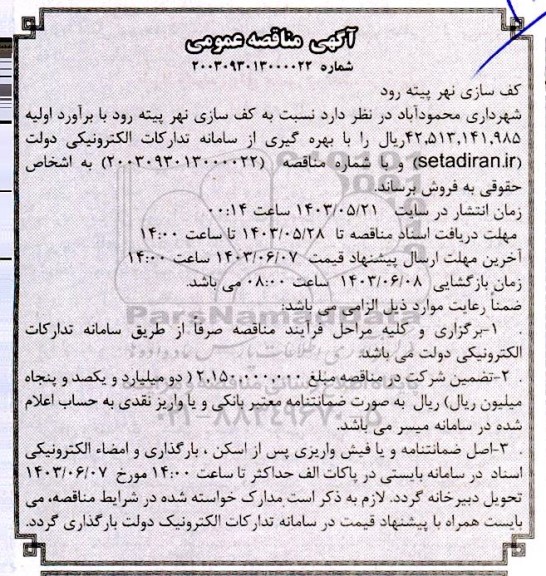 آگهی مناقصه عمومی
شماره ۲۰۰۳۰۹۳۰۱۳۰۰۰۰۲۲
کف سازی نهر پیته رود
شهرداری محمودآباد در نظر دارد نسبت به کف سازی نهر پیته رود با برآورد اولیه
۴۲,۵۱۳,۱۴۱,۹۸۵ریال را با بهره گیری از سامانه تدارکات الکترونیکی دولت
(setadiran.ir) و با شماره مناقصه (۲۰۰۳۰۹۳۰۱۳۰۰۰۰۲۲) به اشخاص
حقوقی به فروش برساند.
زمان انتشار در سایت ۱۴۰۳/۰۵/۲۱ ساعت ۰۰:۱۴
مهلت دریافت اسناد مناقصه تا ۱۴۰۳/۰۵/۲۸ تا ساعت ۱۴:۰۰
آخرین مهلت ارسال پیشنهاد قیمت ۱۴۰۳/۰۶/۰۷ ساعت ۱۴:۰۰
زمان بازگشایی ۱۴۰۳/۰۶/۰۸ ساعت ۰۸:۰۰ می باشد.
ضمنا رعایت موارد ذیل الزامی می باشد:
. ۱-برگزاری و کلیه مراحل فرآیند مناقصه صرفاً از طریق سامانه تدارکات
الکترونیکی دولت می باشد
. ۲-تضمین شرکت در مناقصه مبلغ ۲.۱۵۰.۰۰۰.۰۰۰ ( دو میلیارد و یکصد و پنجاه
میلیون ریال) ریال به صورت ضمانتنامه معتبر بانکی و یا واریز نقدی به حساب اعلام
شده در سامانه میسر می باشد.
. ۳-اصل ضمانتنامه و یا فیش واریزی پس از اسکن ، بارگذاری و امضاء الکترونیکی
اسناد در سامانه بایستی در پاکات الف حداکثر تا ساعت ۱۴:۰۰ مورخ ۱۴۰۳/۰۶/۰۷
تحویل دبیرخانه گردد. لازم به ذکر است مدارک خواسته شده در شرایط مناقصه، می
بایست همراه با پیشنهاد قیمت در سامانه تدارکات الکترونیک دولت بارگذاری گردد.
ParsNamadData
۰۲۱-۸۸۳۴۹۶۷۰-۵